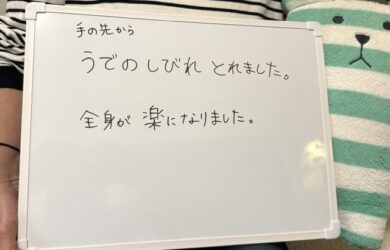 手の先から
うでのしびれ とれました。
全身が 楽になりました。